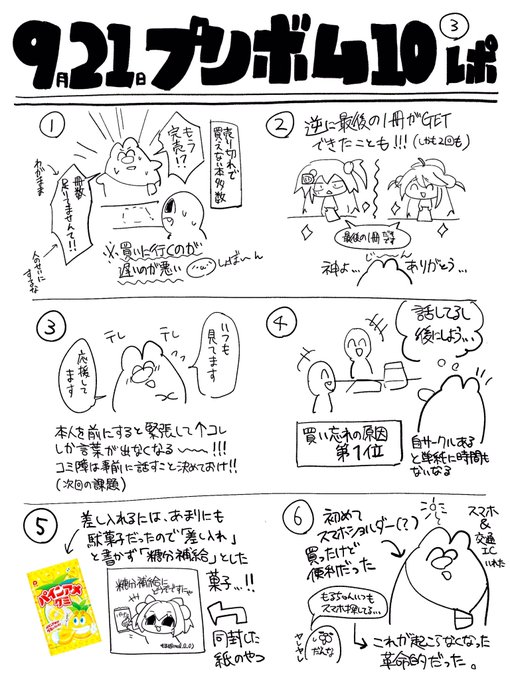 9月21日プリボム10レポ③
①
売り切れで
買えない本多数
もう
完売!?
わがまま
冊数
足りてませんて!!
人のせいに
すな
※買いに行くのが
遅いのが悪い
しょぼ〜ん
②
逆に最後の1冊がGET
できたことも!!!(しかも2回も)
最後の1冊です
じ〜ん
神よ…
ありがとう…
③
テレ
テレ
いつも
見てます
応援して
ます
本人を前にすると緊張して↑コレ
しか言葉が出なくなる
〜〜!!!
コミ障は事前に話すこと決めておけ!!
(次回の課題)
④
話してるし
後にしよう…
買い忘れの原因
第1位
自サークルある
と単純に時間も
ないなる
⑤
差し入れるには、あまりにも
駄菓子だったので「差し入れ」
と書かず「糖分補給」とした
菓子…!!
パインアメ
グミ
糖分補給に
どうぞですにゃ
同封した
紙のやつ
⑥
初めて
スマホショルダー(?)
買ったけど
便利だった
スマホ
&
交通
IC
いれた
もるちゃんいつも
スマホ探してる…
だんな
ヤレヤレ
これが起こらなくなった
革命的だった。